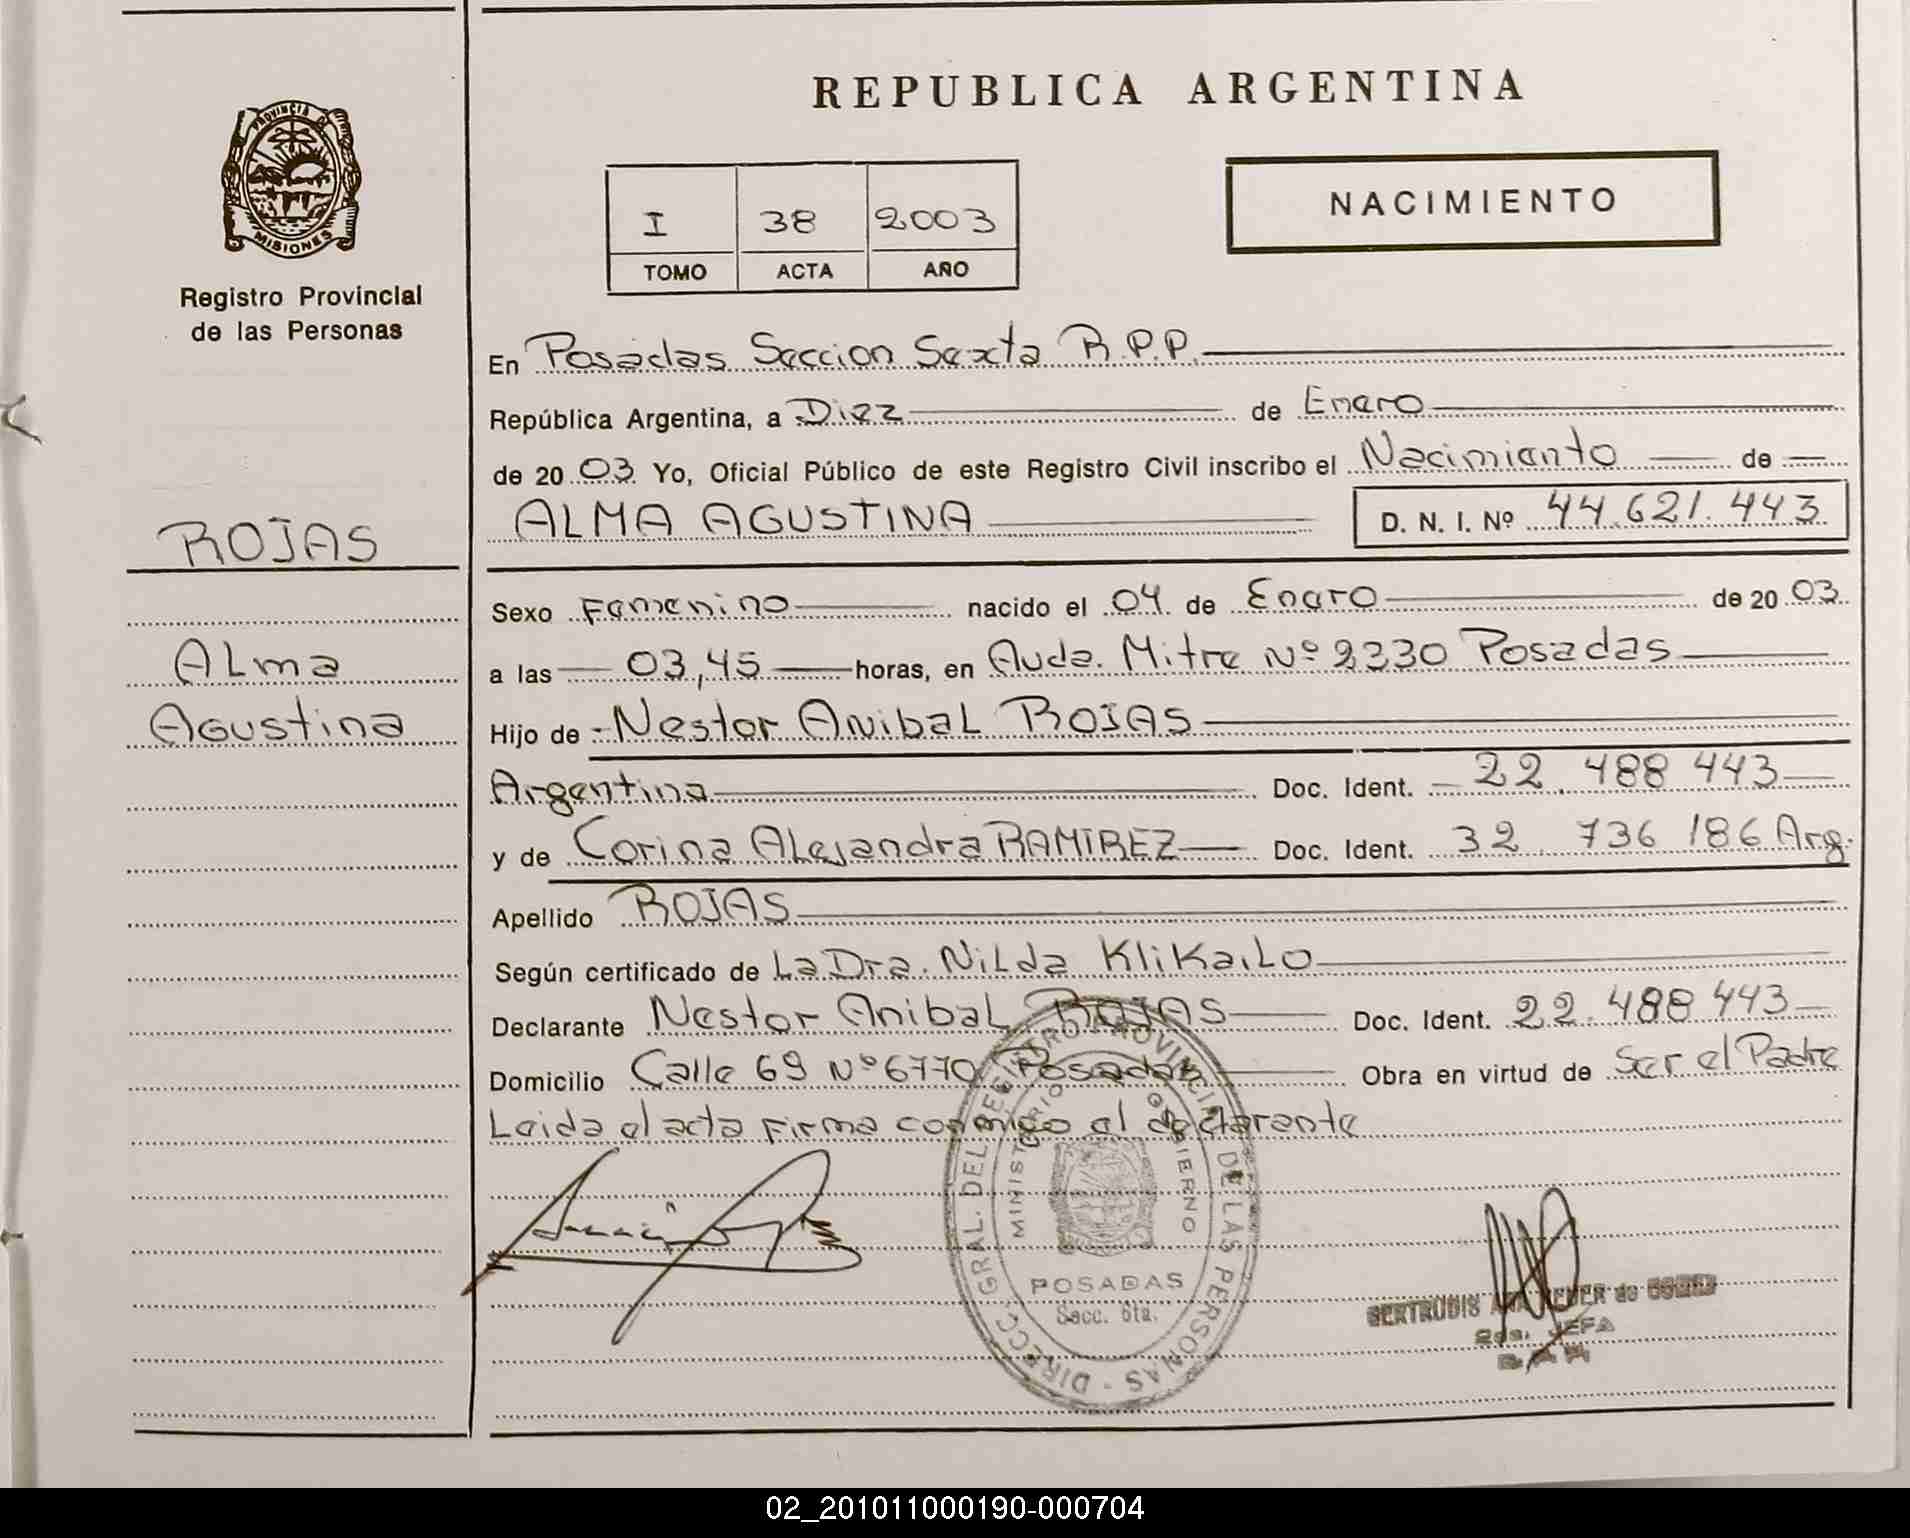 PROVINCIA DE
MISIONES
Registro Provincial
de las Personas
ROJAS
Alma
Agustina
REPUBLICA ARGENTINA
I 38 2003
TOMO ACTA AÑO
NACIMIENTO
En Posadas Seccion Sexta R.P.P.
República Argentina, a Diez de Enero
de 20 03 Yo, Oficial Público de este Registro Civil inscribo el Nacimiento de
ALMA AGUSTINA D. N. I. Nº 44.621.443
Sexo Femenino nacido el 04 de Enero de 20 03
a las 03,45 horas, en Avda. Mitre Nº 2330 Posadas
Hijo de Nestor Anibal ROJAS
Argentina Doc. Ident. 22.488 443
y de Corina Alejandra RAMIREZ Doc. Ident. 32.736 186 Arg.
Apellido ROJAS
Según certificado de La Dra. Nilda Klikailo
Declarante Nestor Anibal ROJAS Doc. Ident. 22.488 443
Domicilio Calle 69 Nº 6770 Posadas Obra en virtud de Ser el Padre
Leida el acta firma conmigo el declarante
DIRECC. GRAL. DEL REGISTRO PROVINCIAL DE LAS PERSONAS
MINISTERIO GOBIERNO
POSADAS
Secc. 6ta.
GERTRUDIS de
JEFA
02_201011000190-000704